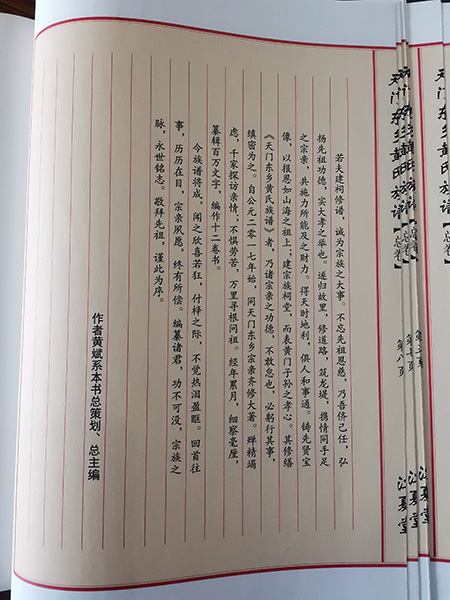 若夫建祠修谱，诚为宗族之大事。不忘先祖恩慈，乃吾侪己任，弘
扬先祖功德，实大孝之举也。遂归故里，修道路，筑龙堤，携情同手足
之宗亲，共施力所能及之财力。得天时地利，俱人和事通。铸先贤宝
像，以报恩如山海之祖上；建宗族祠堂，而表黄门子孙之孝心。其修缮
《天门东乡黄氏族谱》者，乃诸宗亲之功德，不敢怠也，必躬行其事，
缜密为之。自公元二零一七年始，同天门东乡宗亲齐修大著。殚精竭
虑，千家探访亲情；不惧劳苦，万里寻根问祖。经年累月，细察毫厘，
纂辑百万文字，编作十二卷书。
今族谱将成，闻之欣喜若狂，付梓之际，不觉热泪盈眶。回首往
事，历历在目，宗亲夙愿，终有所偿。编纂诸君，功不可没，宗族之
脉，永世铭志。敬拜先祖，谨此为序。
作者黄斌系本书总策划、总主编
天门东乡黄氏族谱
【总卷】
第八页
江夏堂
天门东乡黄氏族谱
【总卷】
第十页
江夏堂
天门东乡黄氏族谱
【总卷】
江夏堂